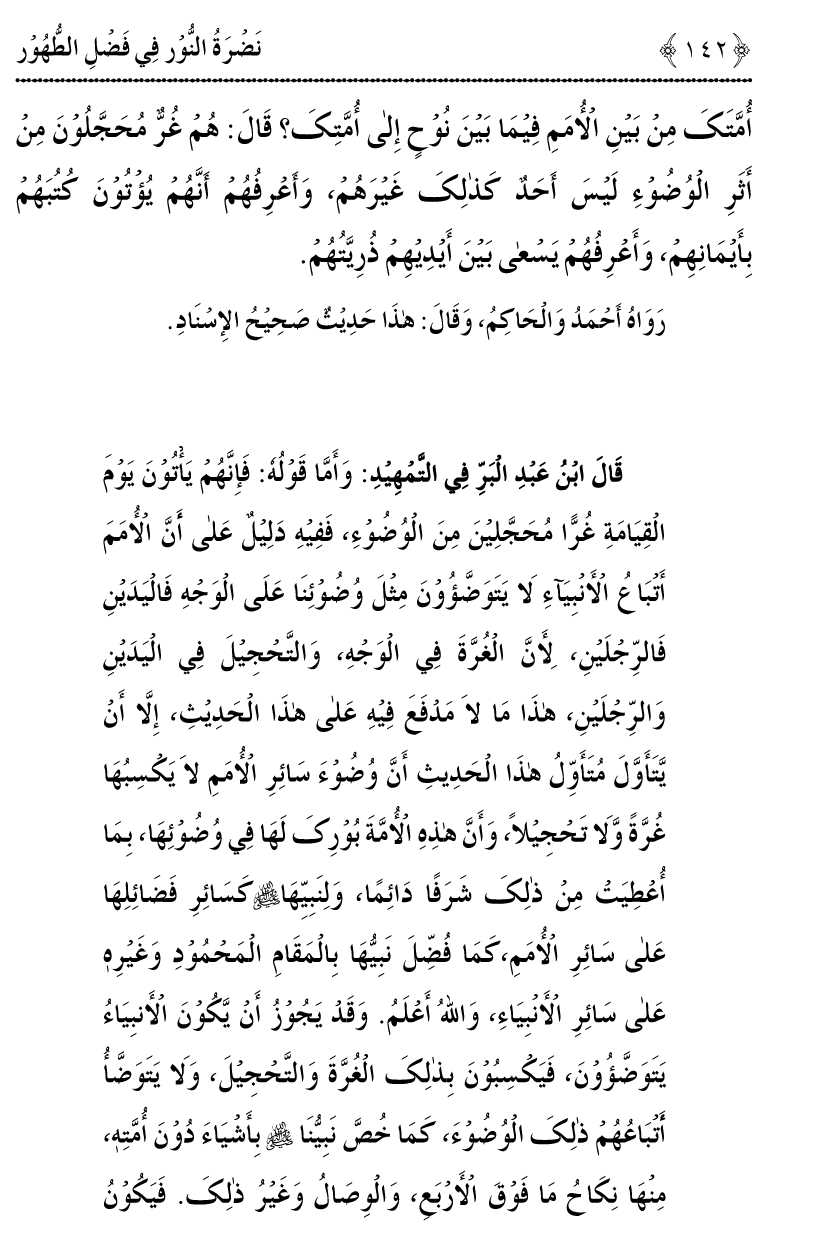 ﴿١٤٢﴾ نَضْرَةُ النُّوْر فِي فَضْلِ الطُّهُوْر
أُمَّتَکَ مِنْ بَيْنِ الْأُمَمِ فِيْمَا بَيْنَ نُوْحٍ إِلٰى أُمَّتِکَ؟ قَالَ: هُمْ غُرٌّ مُحَجَّلُوْنَ مِنْ
أَثَرِ الْوُضُوْءِ لَيْسَ أَحَدٌ کَذٰلِکَ غَيْرَهُمْ، وَأَعْرِفُهُمْ أَنَّهُمْ يُؤْتُوْنَ کُتُبَهُمْ
بِأَيْمَانِهِمْ، وَأَعْرِفُهُمْ يَسْعٰى بَيْنَ أَيْدِيْهِمْ ذُرِيَّتُهُمْ.
رَوَاهُ أَحْمَدُ وَالْحَاکِمُ، وَقَالَ: هٰذَا حَدِيْثٌ صَحِيْحُ الإِسْنَادِ.
قَالَ ابْنُ عَبْدِ الْبَرِّ فِي التَّمْهِيْدِ: وَأَمَّا قَوْلُهُ: فَإِنَّهُمْ يَأْتُوْنَ يَوْمَ
الْقِيَامَةِ غُرًّا مُحَجَّلِيْنَ مِنَ الْوُضُوْءِ، فَفِيْهِ دَلِيْلٌ عَلٰى أَنَّ الْأُمَمَ
أَتْبَاعُ الْأَنْبِيَآءِ لَا يَتَوَضَّؤُوْنَ مِثْلَ وُضُوْئِنَا عَلَى الْوَجْهِ فَالْيَدَيْنِ
فَالرِّجْلَيْنِ، لِأَنَّ الْغُرَّةَ فِي الْوَجْهِ، وَالتَّحْجِيْلَ فِي الْيَدَيْنِ
وَالرِّجْلَيْنِ، هٰذَا مَا لَا مَدْفَعَ فِيْهِ عَلٰى هٰذَا الْحَدِيْثِ، إِلَّا أَنْ
يَّتَأَوَّلَ مُتَأَوِّلُ هٰذَا الْحَدِيثِ أَنَّ وُضُوْءَ سَائِرِ الْأُمَمِ لَا يَکْسِبُهَا
غُرَّةً وَّلَا تَحْجِيْلاً، وَأَنَّ هٰذِهِ الْأُمَّةَ بُوْرِکَ لَهَا فِي وُضُوْئِهَا، بِمَا
أُعْطِيَتْ مِنْ ذٰلِکَ شَرَفًا دَائِمًا، وَلِنَبِيِّهَا ﷺ کَسَائِرِ فَضَائِلِهَا
عَلٰى سَائِرِ الْأُمَمِ،کَمَا فُضِّلَ نَبِيُّهَا بِالْمَقَامِ الْمَحْمُوْدِ وَغَيْرِهِ
عَلٰى سَائِرِ الْأَنْبِيَاءِ، وَاللهُ أَعْلَمُ. وَقَدْ يَجُوْزُ أَنْ يَّکُوْنَ الْأَنبِيَاءُ
يَتَوَضَّؤُوْنَ، فَيَکْسِبُوْنَ بِذٰلِکَ الْغُرَّةَ وَالتَّحْجِيْلَ، وَلَا يَتَوَضَّأُ
أَتْبَاعُهُمْ ذٰلِکَ الْوُضُوْءَ، کَمَا خُصَّ نَبِيُّنَا ﷺ بِأَشْيَاءَ دُوْنَ أُمَّتِهِ،
مِنْهَا نِکَاحُ مَا فَوْقَ الْأَرْبَعِ، وَالْوِصَالُ وَغَيْرُ ذٰلِکَ. فَيَکُوْنُ